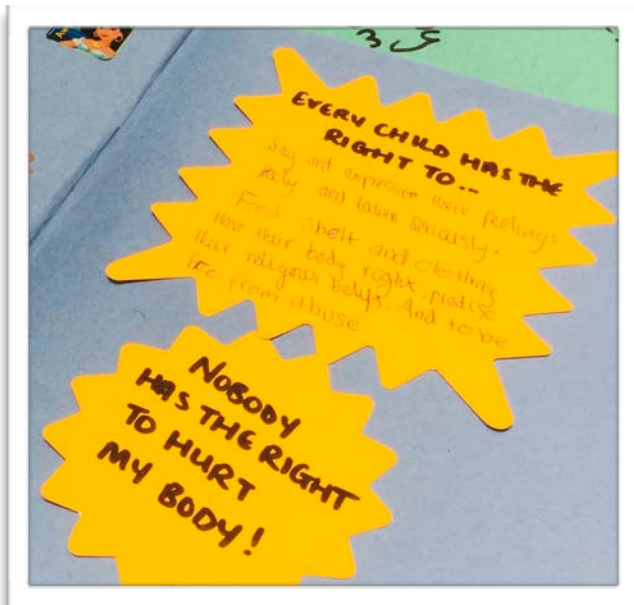 EVERY CHILD HAS THE
RIGHT TO...
Say and expression their feelings
feely and taken seriously.
Food shelt and clothing
Have their body right. practise
their religious beliefs. And to be
free from abuse
NOBODY
HAS THE RIGHT
TO HURT
MY BODY!